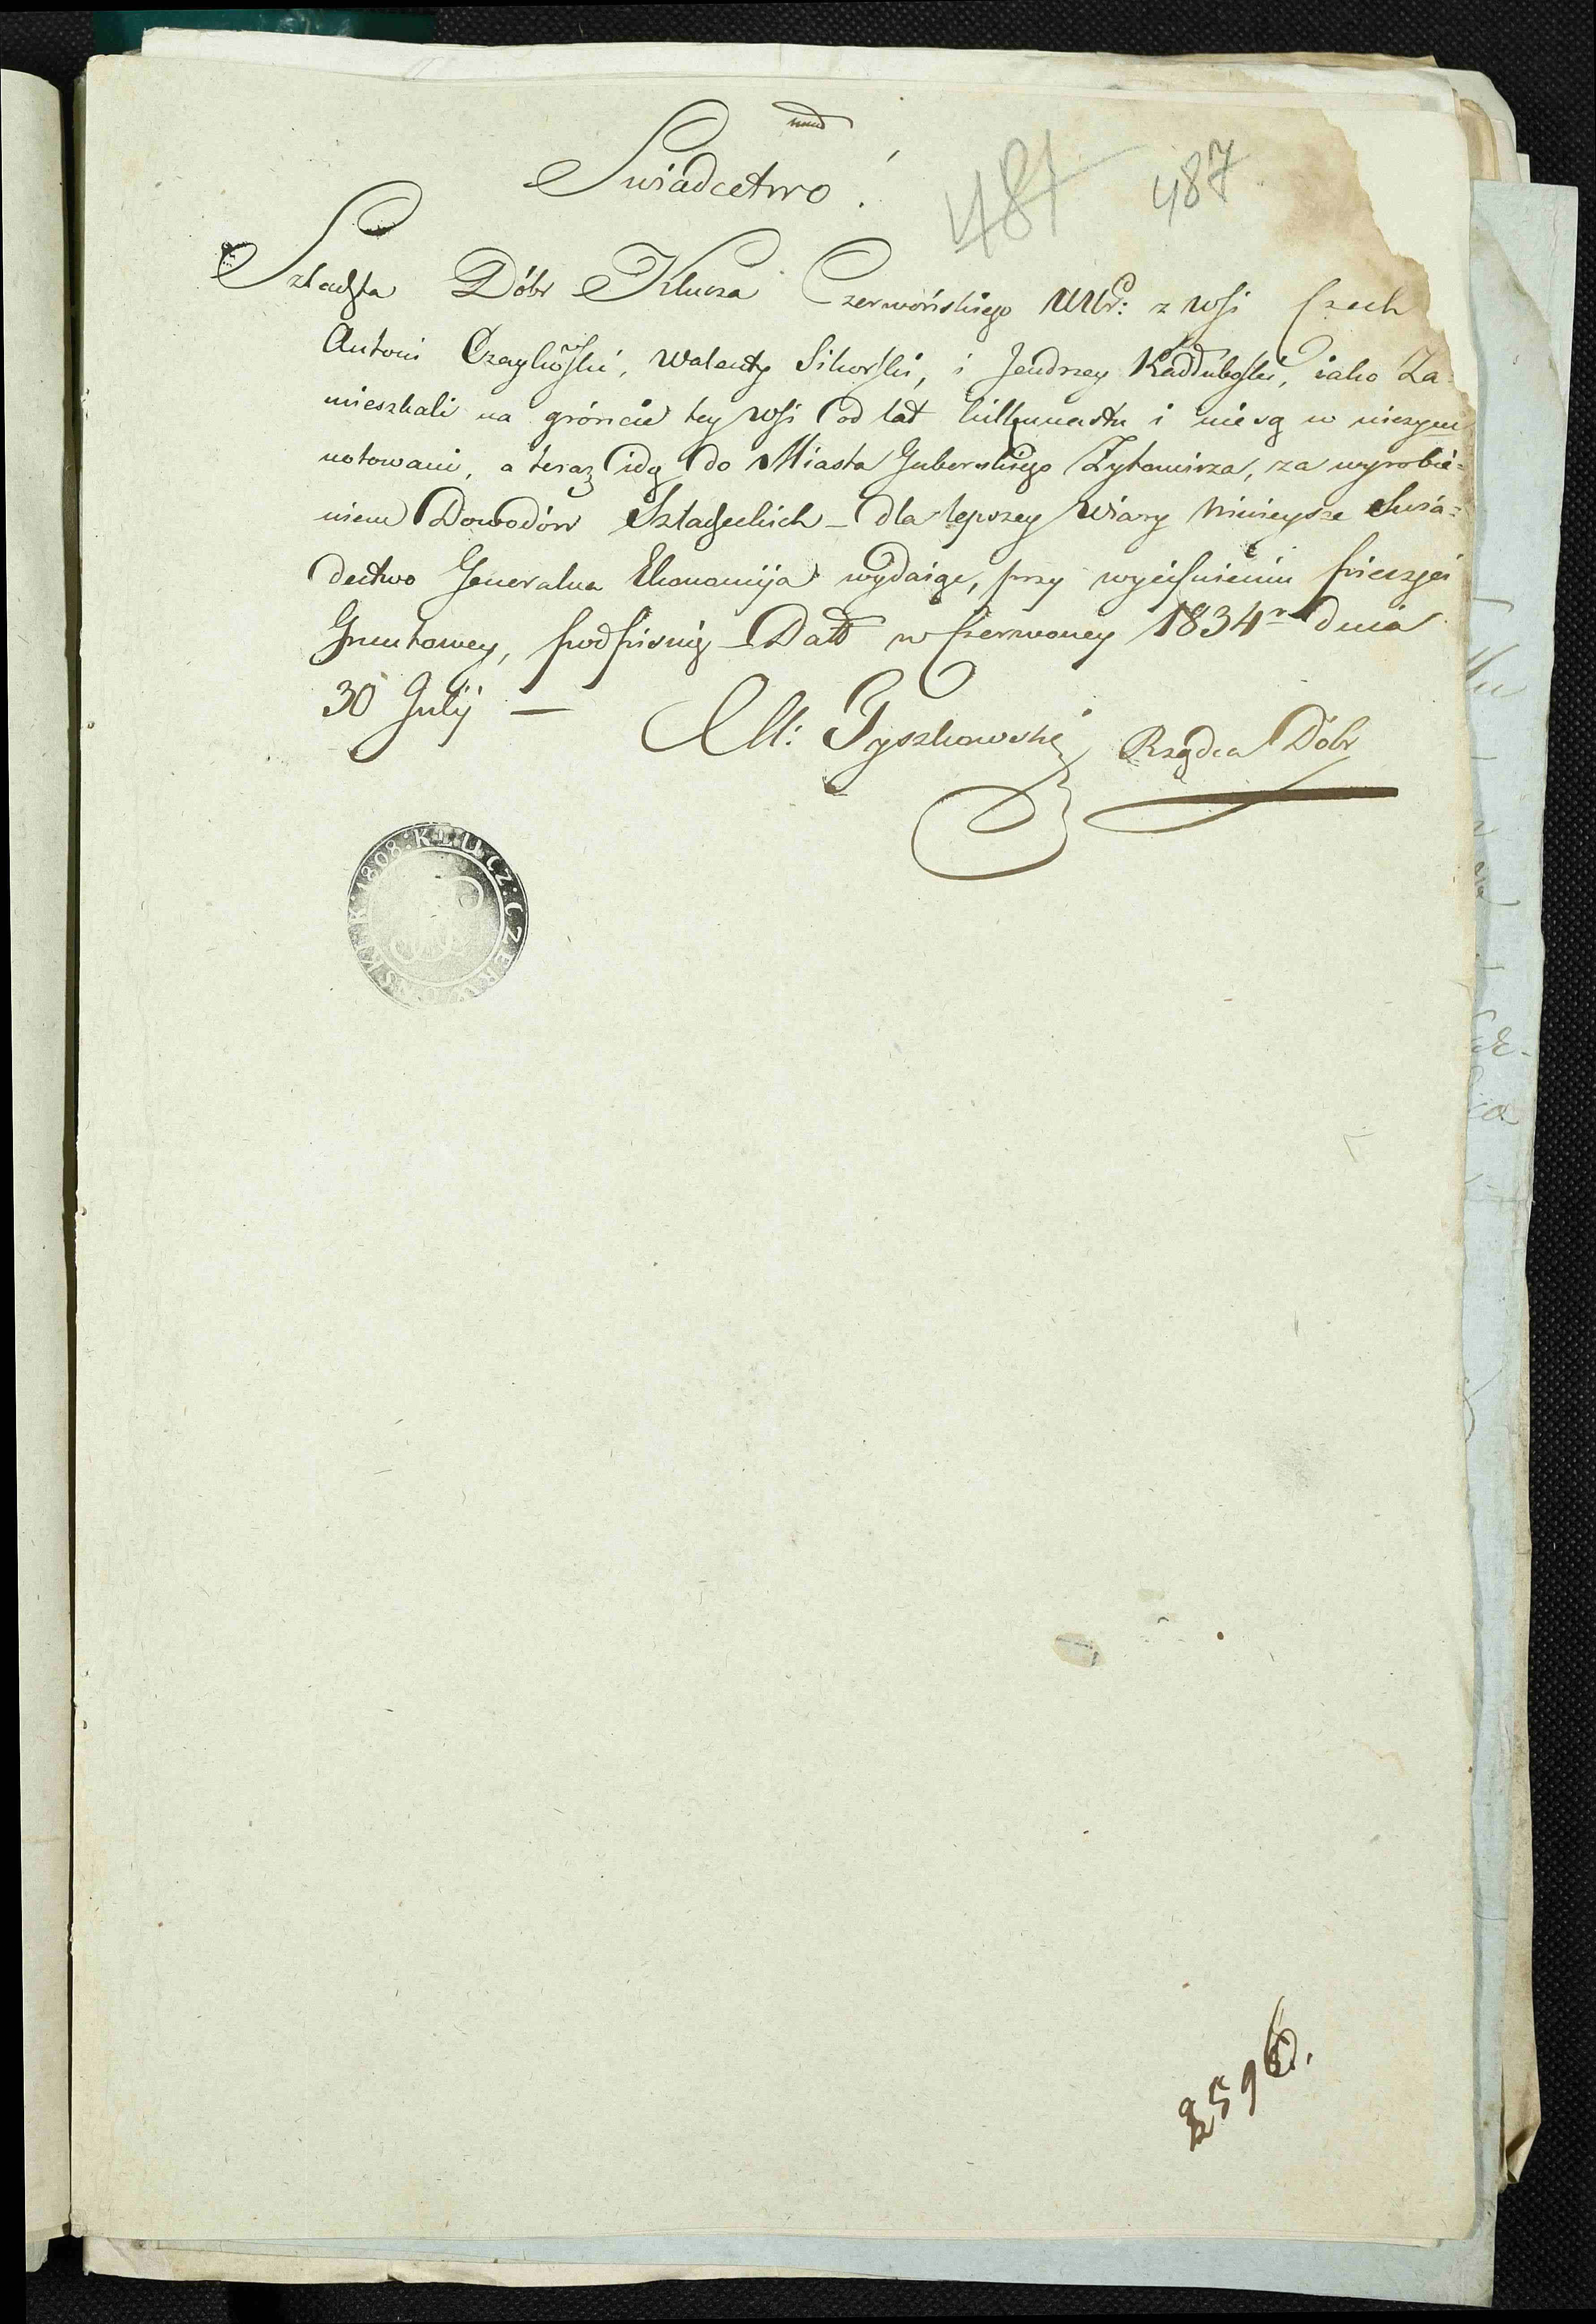 Swiadectwo.
487 487
Szlachta Dóbr Klucza Czerwońskiego UUr: z wsi Czech
Antoni Czaykowski, Walenty Sikorski, i Jendrzey Kadduboski, iako Za=
mieszkali na gróncie tey wsi od lat kilkunastu i nie są w niczym
notowani, a teraz idą do Miasta Guberskiego Zytomirza, za wyrobie=
niem Dowodów Szlacheckich – dla lepszey wiary ninieysze Swia=
dectwo Generalna Ekonomija wydaiąc, przy wyciśnieniu pieczęci
Gruntowey, podpisuię – Datt w Czerwoney 1834 r. dnia
30 Julij –
M: Tyszkowski Rządca Dóbr
1808: KLUCZ: CZERWOŃSKI: R:
2596.